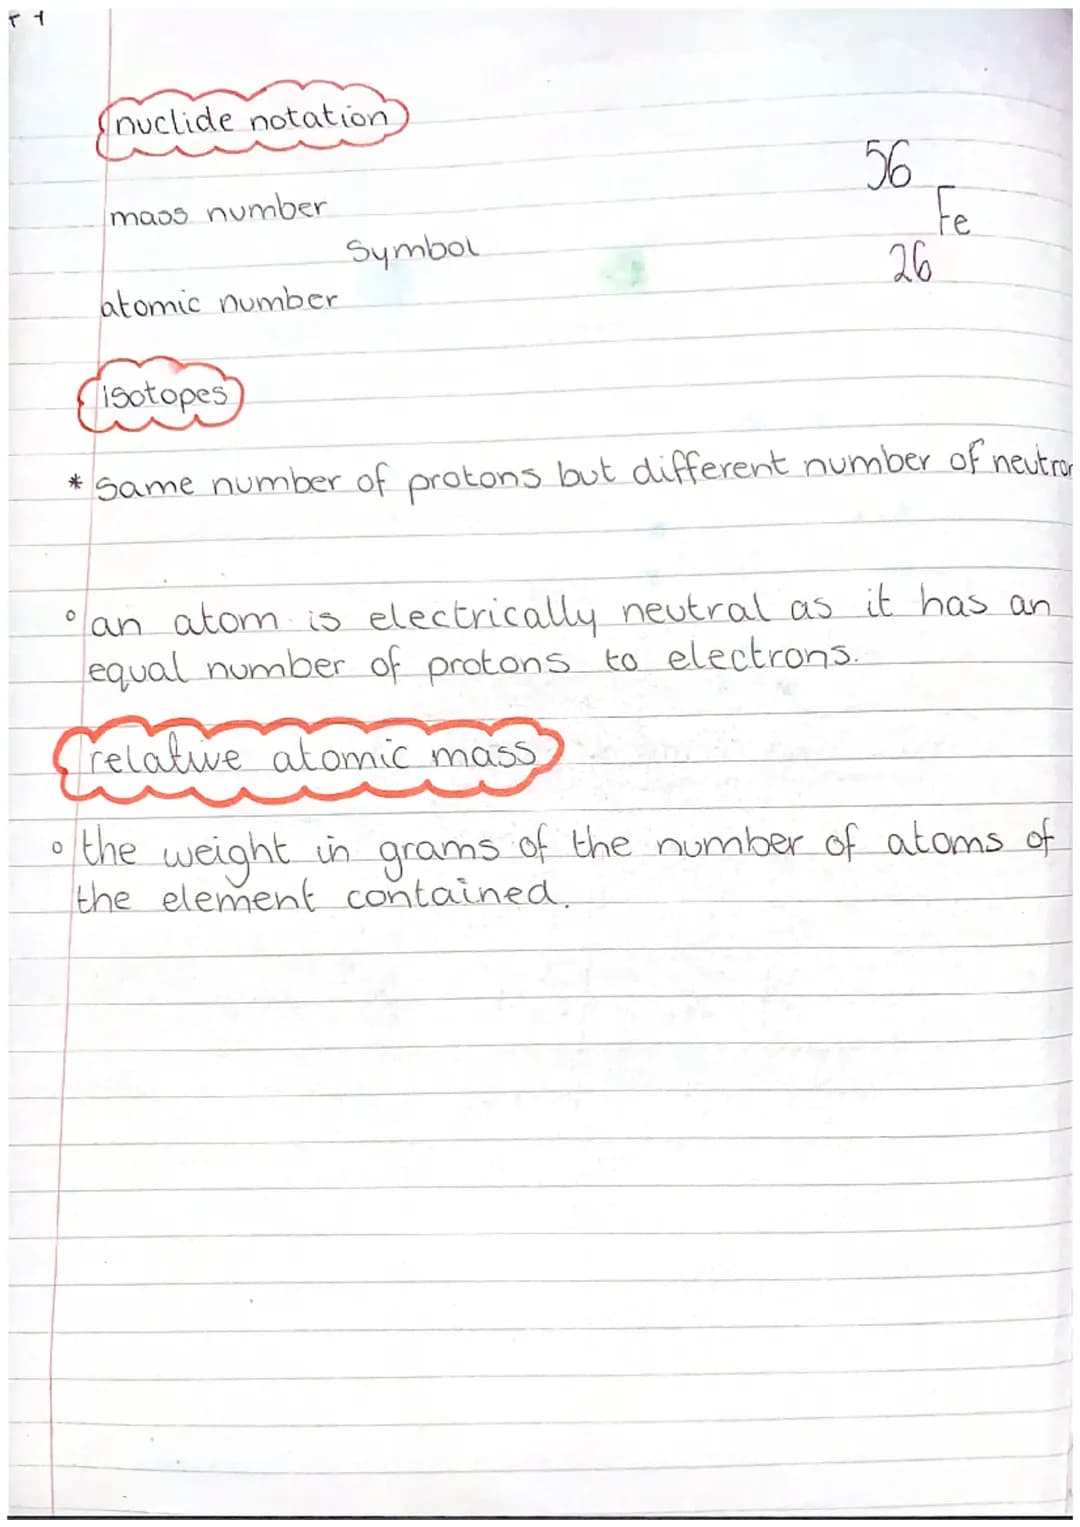 nuclide notation
56
mass number
Fe
Symbol
26
atomic number
isotopes
* Same number of protons but different number of neutron
° an atom is electrically neutral as it has an
equal number of protons to electrons.
relative atomic mass
° the weight in grams of the number of atoms of
the element contained.